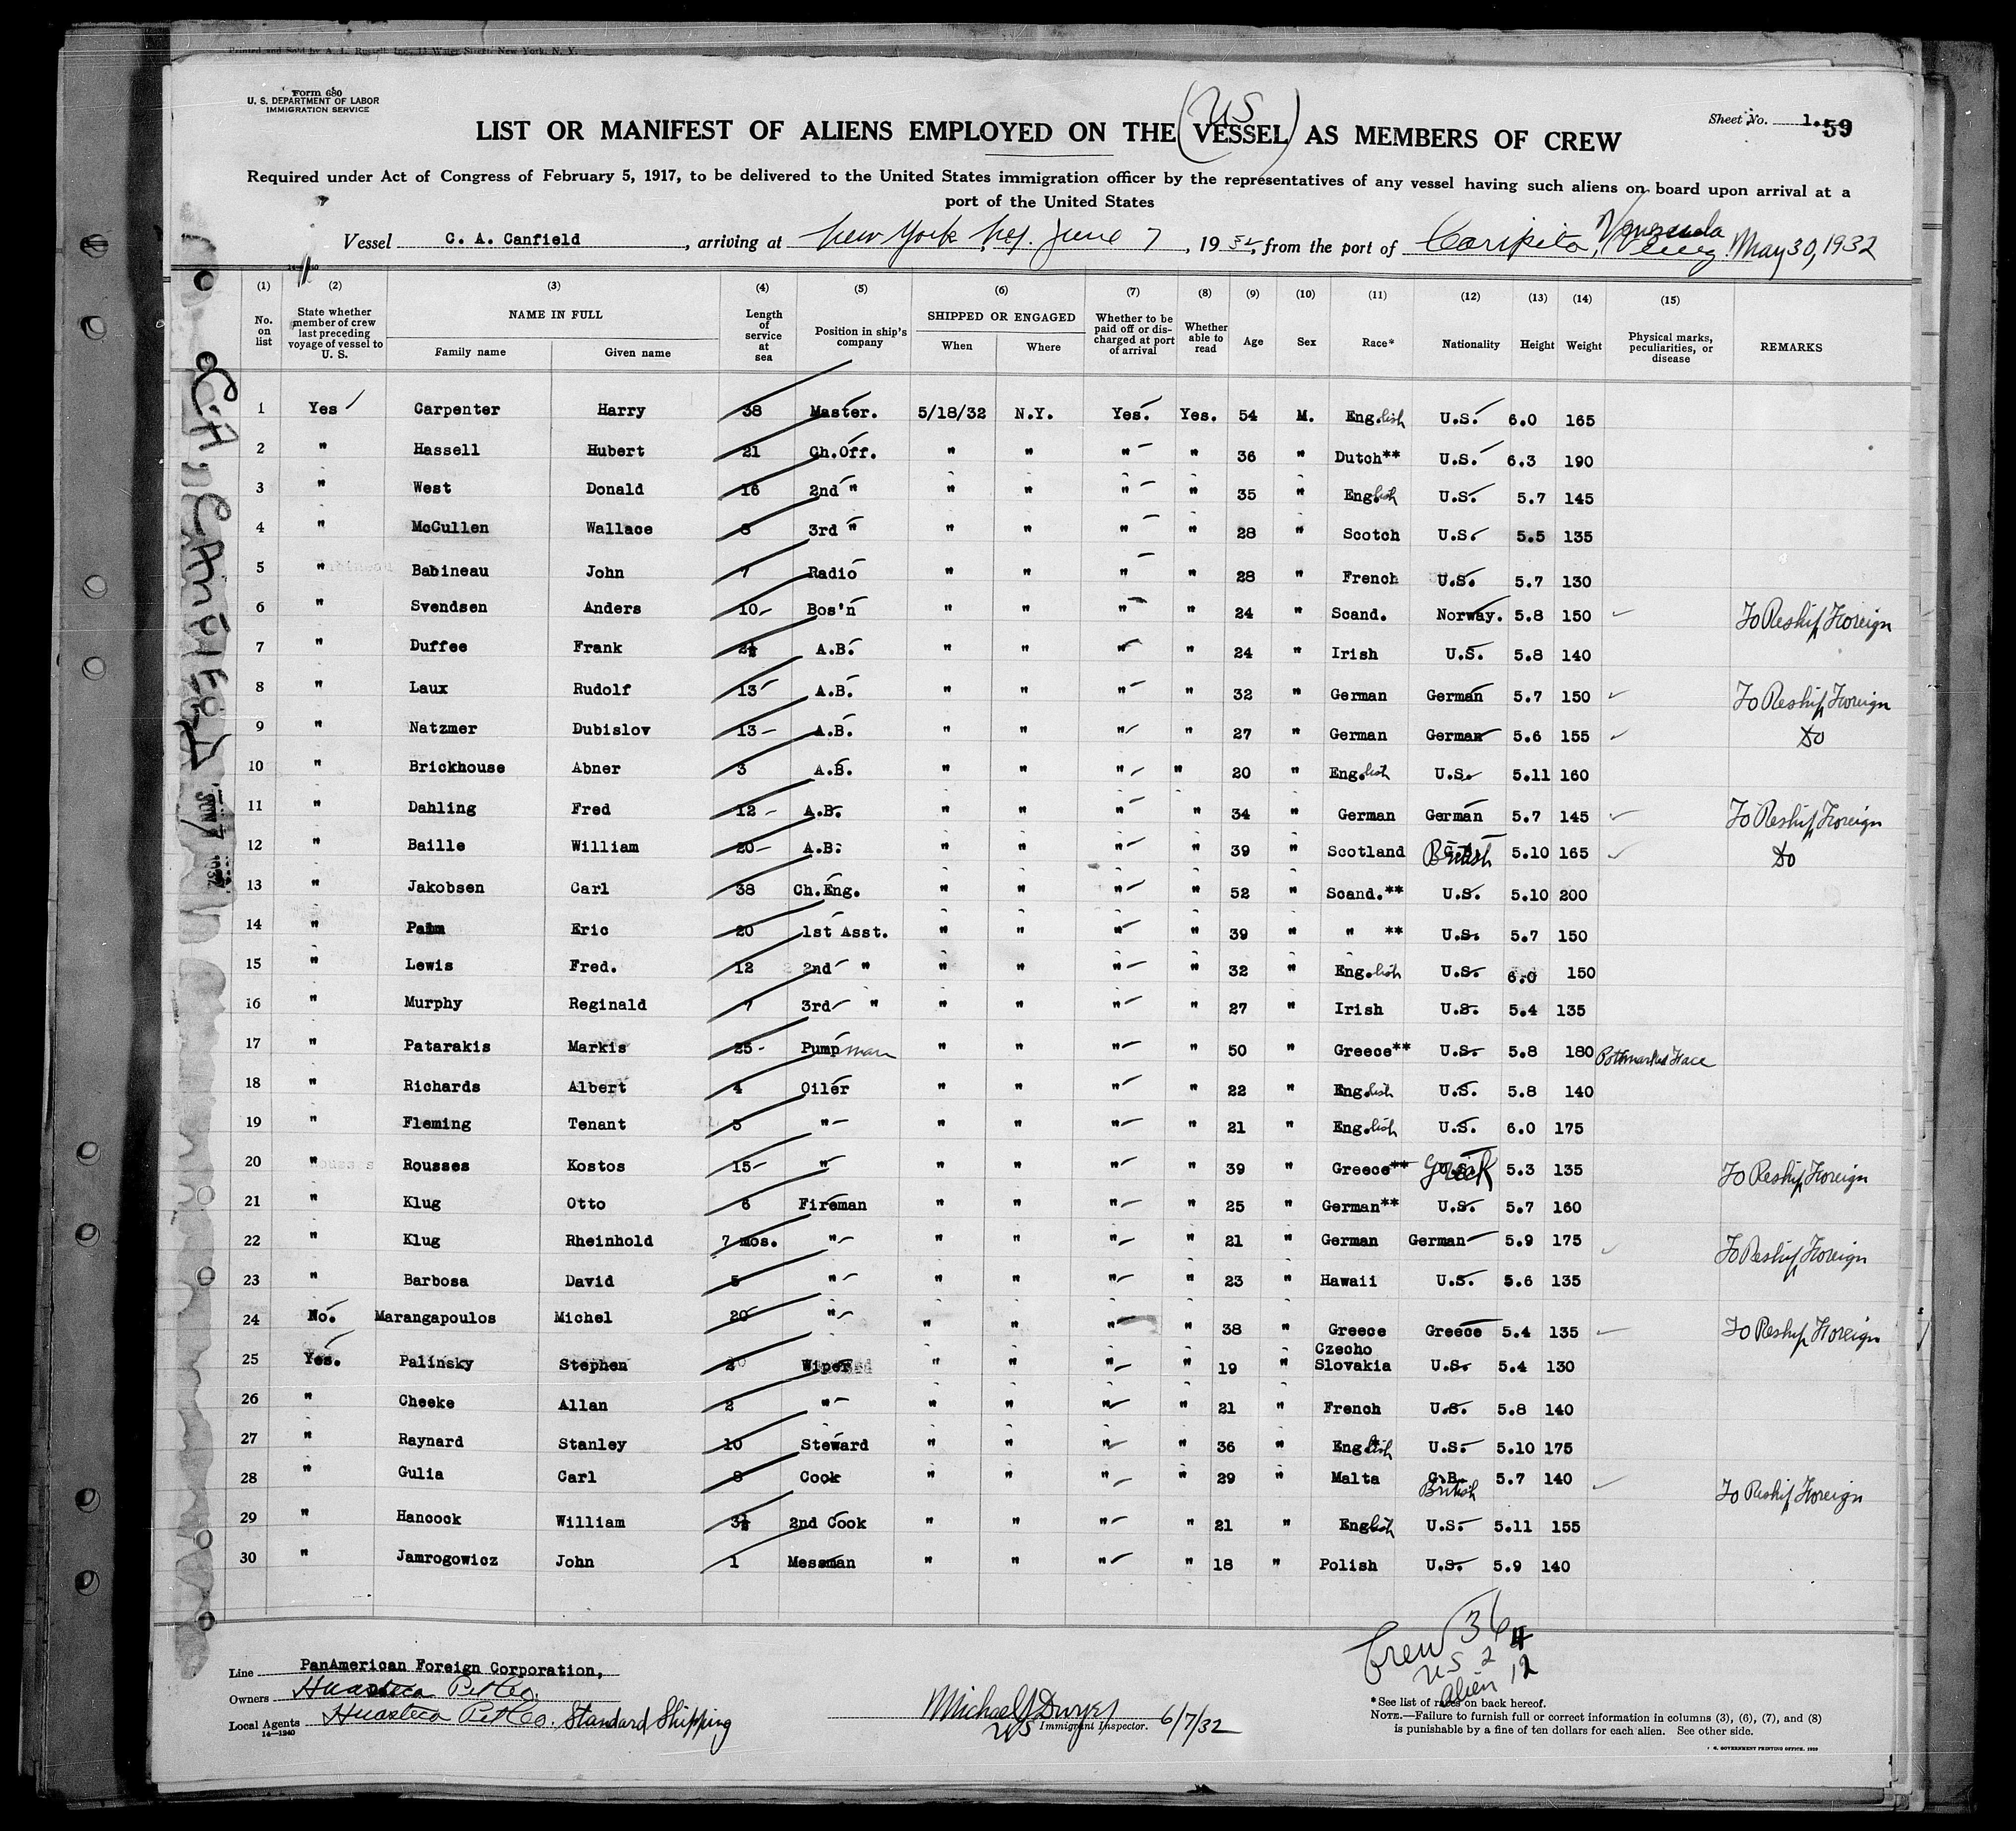 Printed and Sold by A. L. Russell, Inc., 13 Water Street, New York, N. Y.
Form 680
U. S. DEPARTMENT OF LABOR
IMMIGRATION SERVICE
LIST OR MANIFEST OF ALIENS EMPLOYED ON THE (US VESSEL) AS MEMBERS OF CREW
Sheet No. 1. 59
Required under Act of Congress of February 5, 1917, to be delivered to the United States immigration officer by the representatives of any vessel having such aliens on board upon arrival at a
port of the United States
Vessel C. A. Canfield, arriving at New York, N.Y. June 7, 1932, from the port of Caripito, Venezuela May 30, 1932
(1) (2) (3) (4) (5) (6) (7) (8) (9) (10) (11) (12) (13) (14) (15)
No. on list | State whether member of crew last preceding voyage of vessel to U. S. | NAME IN FULL Family name Given name | Length of service at sea | Position in ship's company | SHIPPED OR ENGAGED When Where | Whether to be paid off or discharged at port of arrival | Whether able to read | Age | Sex | Race* | Nationality | Height | Weight | Physical marks, peculiarities, or disease | REMARKS
1 Yes Carpenter Harry 38 Master. 5/18/32 N.Y. Yes. Yes. 54 M. English U.S. 6.0 165
2 " Hassell Hubert 21 Ch.Off. " " " " 36 " Dutch** U.S. 6.3 190
3 " West Donald 16 2nd " " " " " 35 " English U.S. 5.7 145
4 " McCullen Wallace 8 3rd " " " " " 28 " Scotch U.S. 5.5 135
5 " Babineau John 7 Radio " " " " 28 " French U.S. 5.7 130
6 " Svendsen Anders 10 Bos'n " " " " 24 " Scand. Norway. 5.8 150 To Reship Foreign
7 " Duffee Frank 2½ A.B. " " " " 24 " Irish U.S. 5.8 140
8 " Laux Rudolf 13 A.B. " " " " 32 " German German 5.7 150 To Reship Foreign
9 " Natzmer Dubislov 13 A.B. " " " " 27 " German German 5.6 155 Do
10 " Brickhouse Abner 3 A.B. " " " " 20 " English U.S. 5.11 160
11 " Dahling Fred 12 A.B. " " " " 34 " German German 5.7 145 To Reship Foreign
12 " Baille William 20 A.B. " " " " 39 " Scotland British 5.10 165 Do
13 " Jakobsen Carl 38 Ch.Eng. " " " " 52 " Scand.** U.S. 5.10 200
14 " Palm Eric 20 1st Asst. " " " " 39 " " ** U.S. 5.7 150
15 " Lewis Fred. 12 2nd " " " " " 32 " English U.S. 6.0 150
16 " Murphy Reginald 7 3rd " " " " " 27 " Irish U.S. 5.4 135
17 " Patarakis Markis 25 Pumpman " " " " 50 " Greece** U.S. 5.8 180 Pockmarked Face
18 " Richards Albert 4 Oiler " " " " 22 " English U.S. 5.8 140
19 " Fleming Tenant 5 " " " " " 21 " English U.S. 6.0 175
20 " Rousses Kostos 15 " " " " " 39 " Greece** Greek 5.3 135 To Reship Foreign
21 " Klug Otto 6 Fireman " " " " 25 " German** U.S. 5.7 160
22 " Klug Rheinhold 7 mos. " " " " " 21 " German German 5.9 175 To Reship Foreign
23 " Barbosa David 5 " " " " " 23 " Hawaii U.S. 5.6 135
24 No. Marangapoulos Michel 20 " " " " " 38 " Greece Greece 5.4 135 To Reship Foreign
25 Yes. Palinsky Stephen 2 Wiper " " " " 19 " Czecho Slovakia U.S. 5.4 130
26 " Cheeke Allan 2 " " " " " 21 " French U.S. 5.8 140
27 " Raynard Stanley 10 Steward " " " " 36 " English U.S. 5.10 175
28 " Gulia Carl 8 Cook " " " " 29 " Malta G.B. British 5.7 140 To Reship Foreign
29 " Hancock William 3½ 2nd Cook " " " " 21 " English U.S. 5.11 155
30 " Jamrogowicz John 1 Messman " " " " 18 " Polish U.S. 5.9 140
Crew 36
Alien 12
Line PanAmerican Foreign Corporation,
Owners Huasteca Pet Co.
Local Agents Huasteca Pet Co. Standard Shipping
14—1240
Michael J Dwyer
US Immigrant Inspector. 6/7/32
*See list of races on back hereof.
NOTE.—Failure to furnish full or correct information in columns (3), (6), (7), and (8)
is punishable by a fine of ten dollars for each alien. See other side.
C.A. CANFIELD
JUN 7 1932